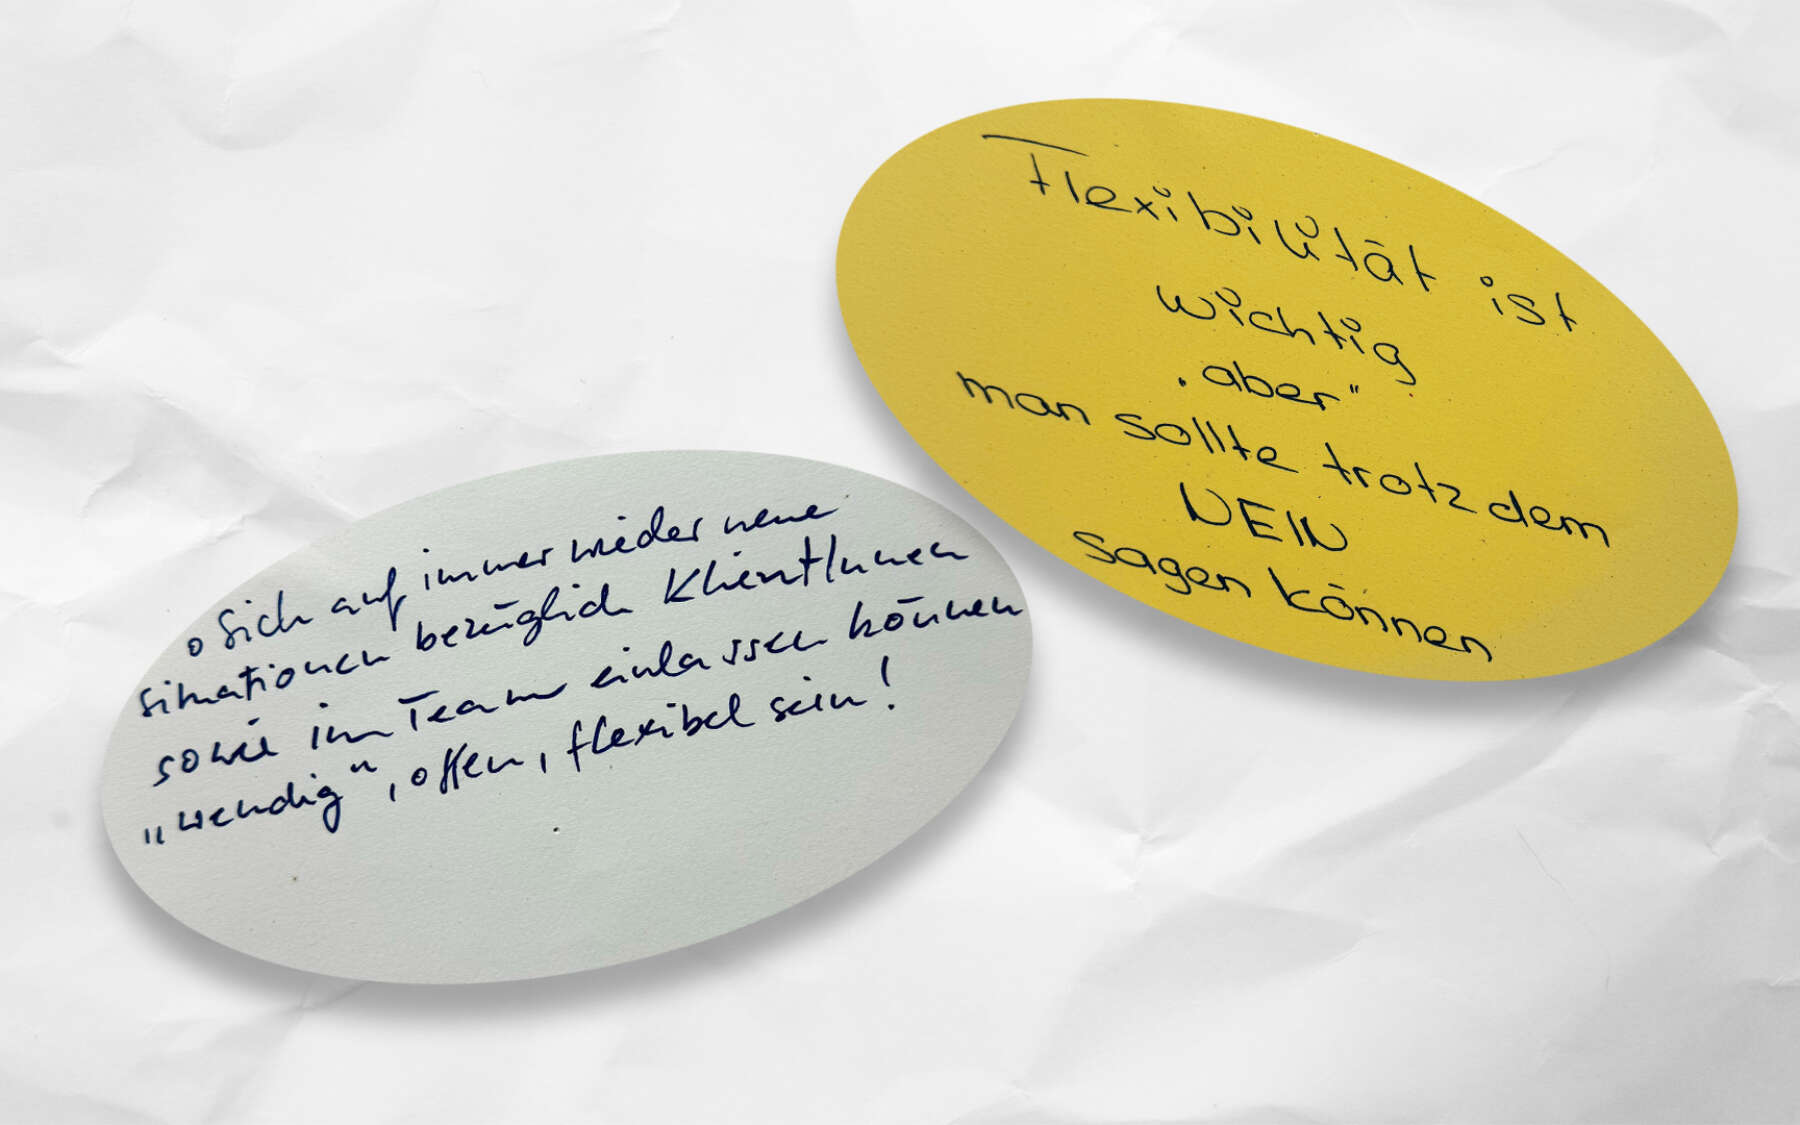 Flexibilität ist
wichtig
„aber"
man sollte trotzdem
NEIN
sagen können
o Sich auf immer wieder neue
Situationen bezüglich KlientInnen
sowie im Team einlassen können
„wendig", offen, flexibel sein!